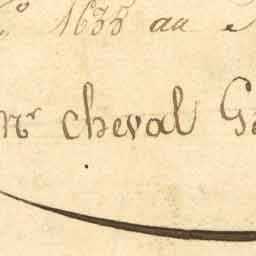 1635 au
mr cheval